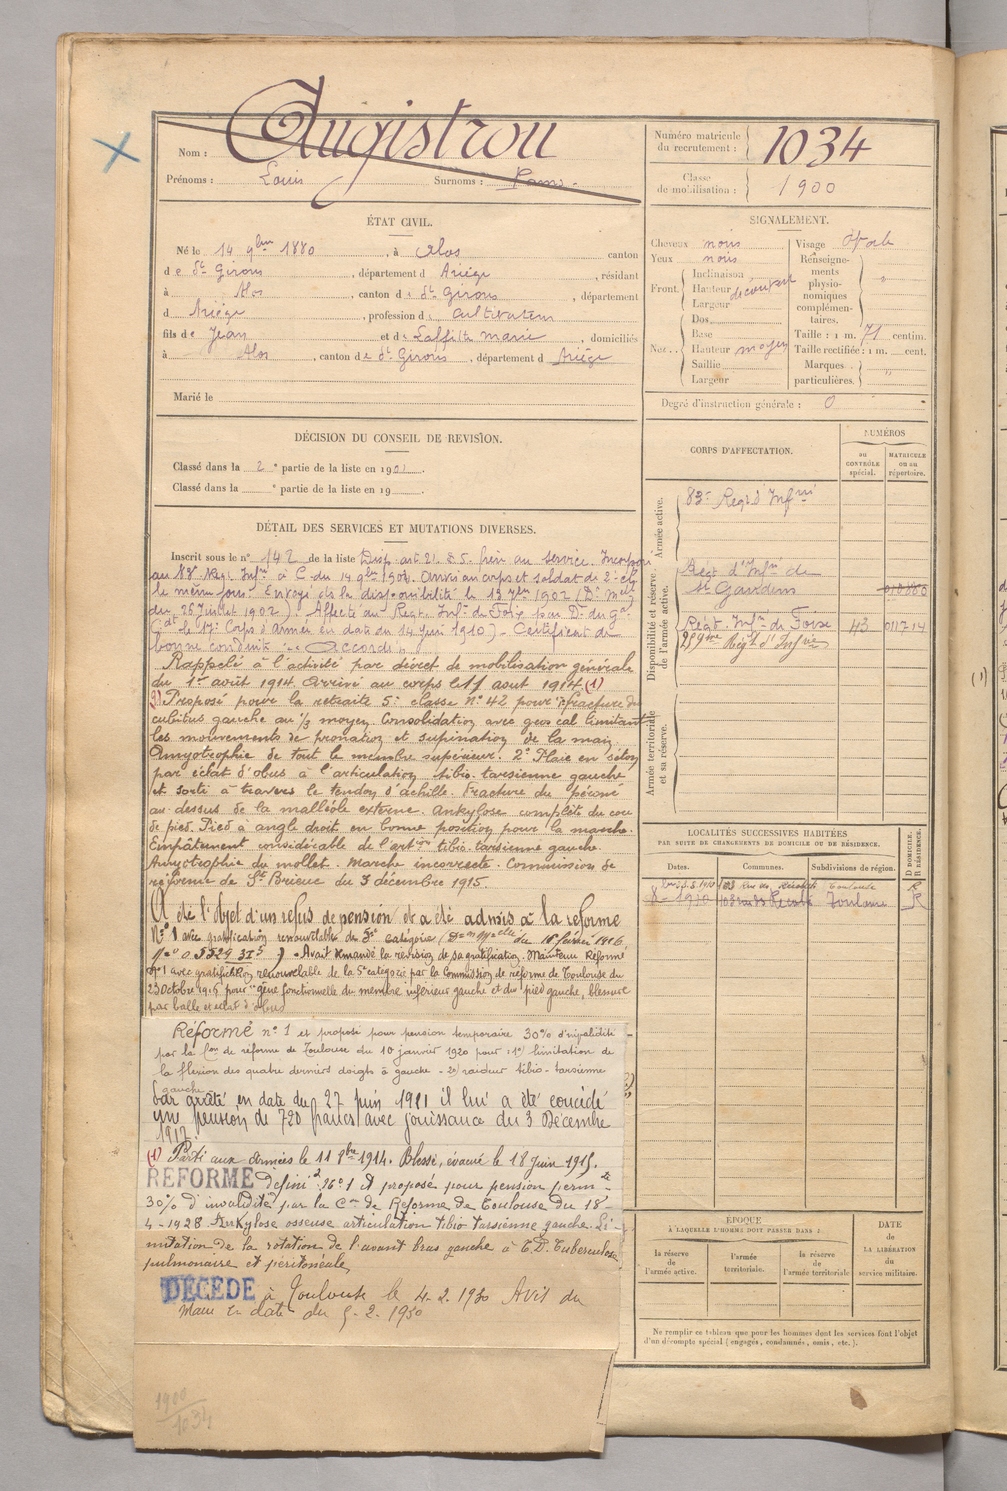 Nom : Augistrou
Prénoms : Louis Surnoms :
Numéro matricule du recrutement : 1034
Classe de mobilisation : 1900
ÉTAT CIVIL.
Né le 14 9bre 1880, à Alos canton
de St Girons, département d Ariège, résidant
à Alos, canton de St Girons, département
d Ariège, profession de cultivateur
fils de Jean et de Laffitte Marie, domiciliés
à Alos, canton de St Girons, département d Ariège
Marié le
SIGNALEMENT.
Cheveux noirs
Yeux noirs
Front. Inclinaison
Hauteur découvert
Largeur
Nez. Dos
Base
Hauteur moyen
Saillie
Largeur
Visage ovale
Renseignements physionomiques complémentaires.
Taille : 1 m. 71 centim.
Taille rectifiée : 1 m. cent.
Marques particulières. "
Degré d'instruction générale : 0
DÉCISION DU CONSEIL DE REVISION.
Classé dans la 2e partie de la liste en 1901.
Classé dans la e partie de la liste en 19
DÉTAIL DES SERVICES ET MUTATIONS DIVERSES.
Inscrit sous le n° 142 de la liste Disp. art. 21. frère au service. Incorporé
au Régt Infie à C du 14 9bre 1901. Arrivé au corps et soldat de 2e cl.
le même jour. Envoyé dans la disponibilité le 1902 (Dn Mlle
du 26 Juillet 1902). Affecté au Régt Infie de Foix par Dn du Gal
Cdt le 17e Corps d'Armée en date du 14 Juin 1910). - Certificat de
bonne conduite "Accordé"
Rappelé à l'activité par décret de mobilisation générale
du 1er août 1914. Arrivé au corps le 11 août 1914. (1)
Proposé pour la retraite 5e classe N° 42 pour : fracture du
cubitus gauche au 1/3 moyen. Consolidation avec gros cal limitant
les mouvements de pronation et supination de la main.
Amyotrophie de tout le membre supérieur. 2° Plaie en séton
par éclat d'obus à l'articulation tibio-tarsienne gauche
et sorti à travers le tendon d'achille. Fracture du péroné
au dessus de la malléole externe. Ankylose complète du cou
de pied. Pied à angle droit en bonne position pour la marche.
Empâtement considérable de l'arton tibio-tarsienne gauche.
Amyotrophie du mollet. Marche incorrecte. Commission de
réforme de St Brieuc du 3 décembre 1915.
A été l'objet d'un refus de pension et a été admis à la réforme
N° 1 avec gratification renouvelable de 5e catégorie (Don Mlle du 16 février 1916
N° 0.5529 3I5). Avait demandé la revision de sa gratification. Maintenu Réformé
N° 1 avec gratification renouvelable de la 5e catégorie par la Commission de réforme de Toulouse du
23 octobre 1916 pour : gêne fonctionnelle du membre inférieur gauche et du pied gauche, blessure
par balle et éclat d'obus
Réformé n° 1 et proposé pour pension temporaire 30% d'invalidité
par la Con de réforme de Toulouse du 10 janvier 1920 pour : 1°) limitation de
la flexion des quatre derniers doigts à gauche - 2°) raideur tibio-tarsienne
gauche.
Par arrêté en date du 27 juin 1921 il lui a été concédé
une pension de 720 francs avec jouissance du 3 Décembre
1917.
(1) Parti aux armées le 11 8bre 1914. Blessé, évacué le 18 Juin 1915.
REFORME définif N° 1 et proposé pour pension perm-te
30% d'invalidité par la Con de Réforme de Toulouse du 18-
4-1928 Ankylose osseuse articulation tibio tarsienne gauche. Li-
mitation de la rotation de l'avant bras gauche à T.D. Tuberculose
pulmonaire et péritonéale
DÉCÉDÉ à Toulouse le 4-2-1930 Avis du
Maire en date du 5-2-1930
1900
1034
CORPS D'AFFECTATION.
NUMÉROS
au CONTRÔLE spécial.
MATRICULE ou au répertoire.
Armée active.
83e Régt d'Infie
Disponibilité et réserve de l'armée active.
Régt d'Infie de
St Gaudens
Régt Infie de Foix 43 011714
259me Régt d'Infie
Armée territoriale et sa réserve.
LOCALITÉS SUCCESSIVES HABITÉES
PAR SUITE DE CHANGEMENTS DE DOMICILE OU DE RÉSIDENCE.
Dates. Communes. Subdivisions de région. D DOMICILE. R RÉSIDENCE.
Toulouse R
Toulouse R
ÉPOQUE
À LAQUELLE L'HOMME DOIT PASSER DANS :
la réserve de l'armée active.
l'armée territoriale.
la réserve de l'armée territoriale
DATE de LA LIBÉRATION du service militaire.
Ne remplir ce tableau que pour les hommes dont les services font l'objet
d'un décompte spécial (engagés, condamnés, omis, etc.).
(1)